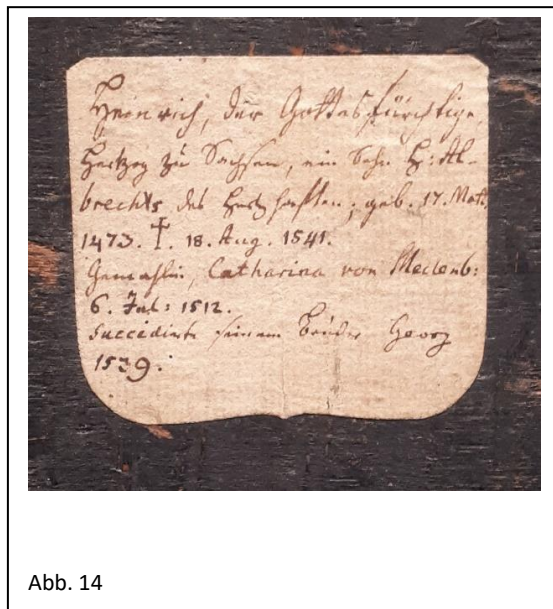 Heinrich, der Gottesfürchtige,
Hertzog zu Sachsen, ein Sohn H: Al-
brechts des Hertzhaften; geb. 17. Mart.
1473. †. 18. Aug. 1541.
Gemahlin, Catharina von Mecklenb:
6. Jul: 1512.
succedirte seinem Bruder Georg
1539.
Abb. 14